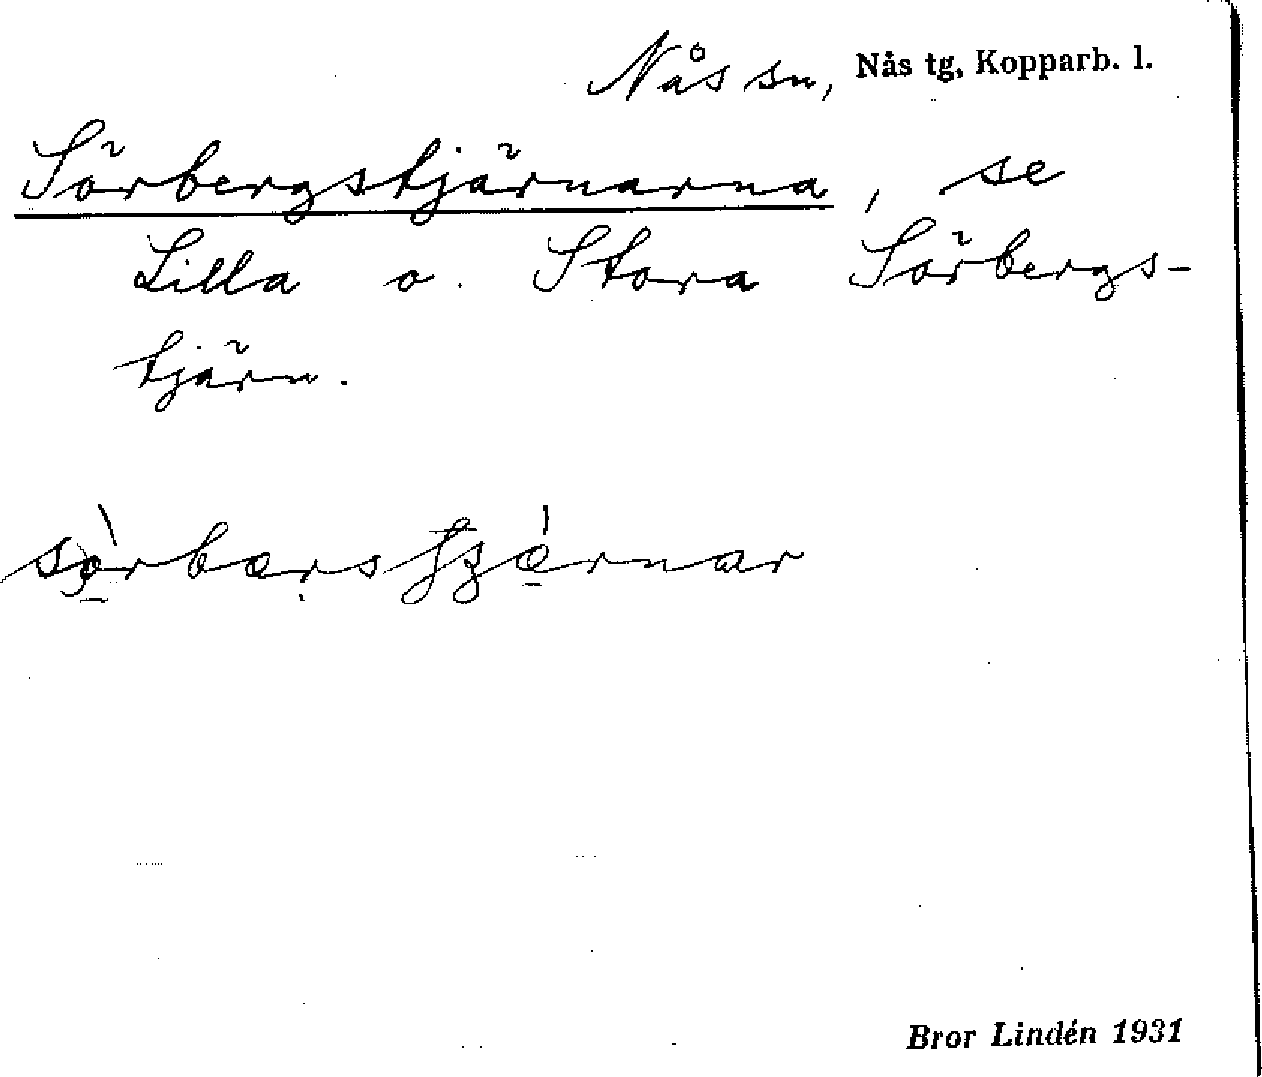 Nås sn, Nås tg, Kopparb. l.
Sörbergstjärnarna, se
Lilla o. Stora Sörbergs-
tjärn.
Bror Lindén 1931